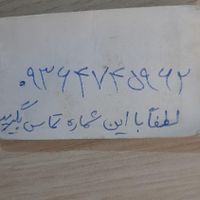 ۰۹۳۶۴۷۴۵۹۶۲
لطفاً با این شماره تماس بگیرید